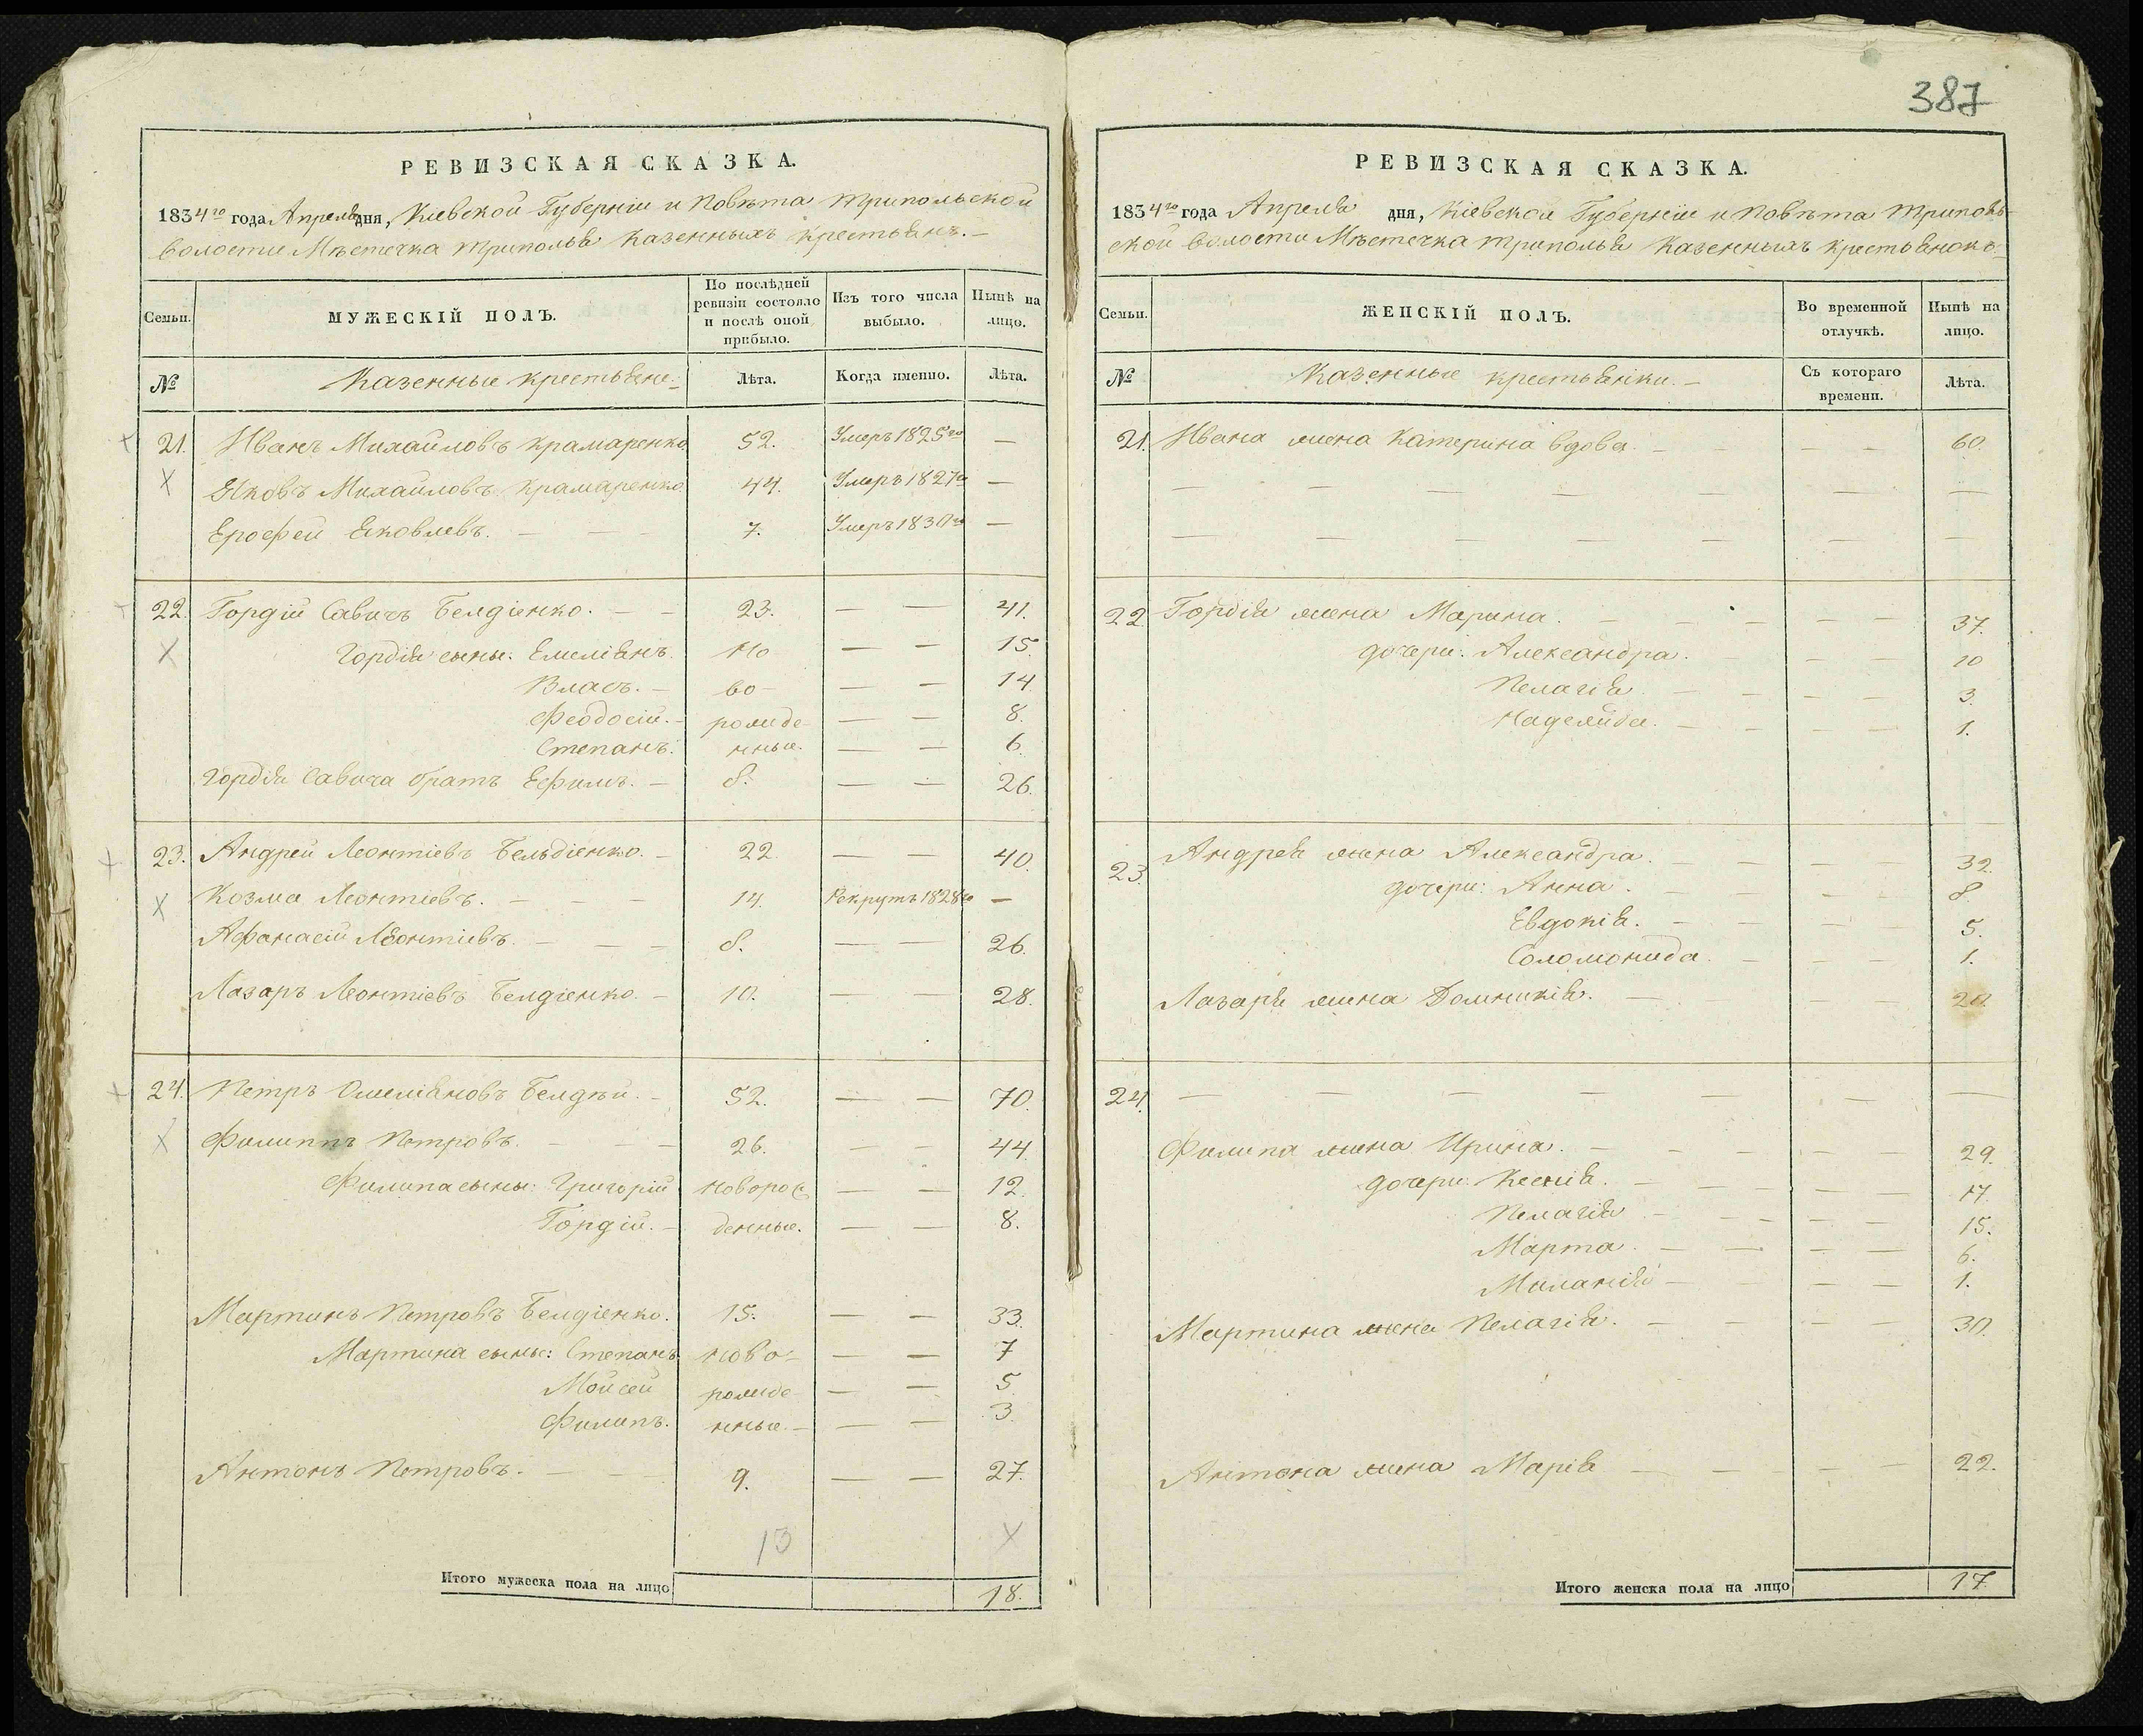 387
РЕВИЗСКАЯ СКАЗКА.
1834го года Апреля дня, Кіевской Губерніи и Повѣта Трипольской
волости Мѣстечка Триполья Казенныхъ Крестьянъ.—
Семьи. МУЖЕСКІЙ ПОЛЪ. По послѣдней ревизіи состояло и послѣ оной прибыло. Изъ того числа выбыло. Нынѣ на лицо.
№ Казенные крестьяне: Лѣта. Когда именно. Лѣта.
21. Иванъ Михайловъ Крамаренко 52. Умеръ 1825го —
Яковъ Михайловъ Крамаренко 44. Умеръ 1827го —
Ерофей Яковлевъ. 7. Умеръ 1830го —
22. Гордій Савичъ Белдіенко. 23. — — 41.
Гордія сыны: Емеліянъ. Но 15.
Власъ. во- 14
Феодосій. рожде- 8.
Степанъ. нные. 6.
Гордія Савича братъ Ефимъ. 8. — — 26.
23. Андрей Леонтіевъ Бельдіенко. 22 — — 40.
Козма Леонтіевъ. 14. Рекрутъ 1828го —
Афанасій Леонтіевъ. 8. — — 26.
Лазаръ Леонтіевъ Белдіенко. 10. — — 28.
24. Петръ Омеліяновъ Белдѣй. 52. — — 70.
Филиппъ Петровъ. 26. — — 44.
Филипа сыны: Григорій Новорож 12.
Гордій. денные. 8.
Мартинъ Петровъ Белдіенко. 15. — — 33.
Мартина сыны: Степанъ. Ново- 7
Мойсей рожде- 5.
Филипъ. нные. 3.
Антонъ Петровъ. 9. — — 27.
13
Итого мужеска пола на лицо 18.
РЕВИЗСКАЯ СКАЗКА.
1834го года Апреля дня, Кіевской Губерніи и Повѣта Триполь-
ской волости Мѣстечка Триполья Казенныхъ крестьянокъ
Семьи. ЖЕНСКІЙ ПОЛЪ. Во временной отлучкѣ. Нынѣ на лицо.
№ Казенные крестьянки.— Съ котораго времени. Лѣта.
21. Ивана жена Катерина вдова. 60.
22. Гордія жена Марина. 37.
дочери: Александра. 10
Пелагія 3.
Надежда. 1.
23. Андрея жена Александра. 32.
дочери: Анна. 8.
Евдокія. 5.
Соломонида. 1.
Лазаря жена Домникія. 20.
24.
Филипа жена Ирина. 29.
дочери: Ксенія. 17.
Пелагія 15.
Марта. 6.
Миланія 1.
Мартина жена Пелагія. 30.
Антона жена Марія 22.
Итого женска пола на лицо 17